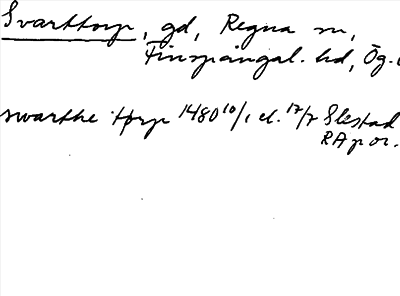 Svarttorp, gd, Regna sn,
Finspångal. hd, Ög.
swarthe thorp 1480 10/1 el. 17/7 Skstad
RAp or.